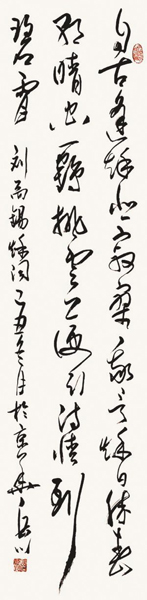 自古逢秋悲寂寥我言秋日胜春
朝晴空一鹤排云上便引诗情到
碧霄 刘禹锡秋词 己丑冬月於京华 岳川